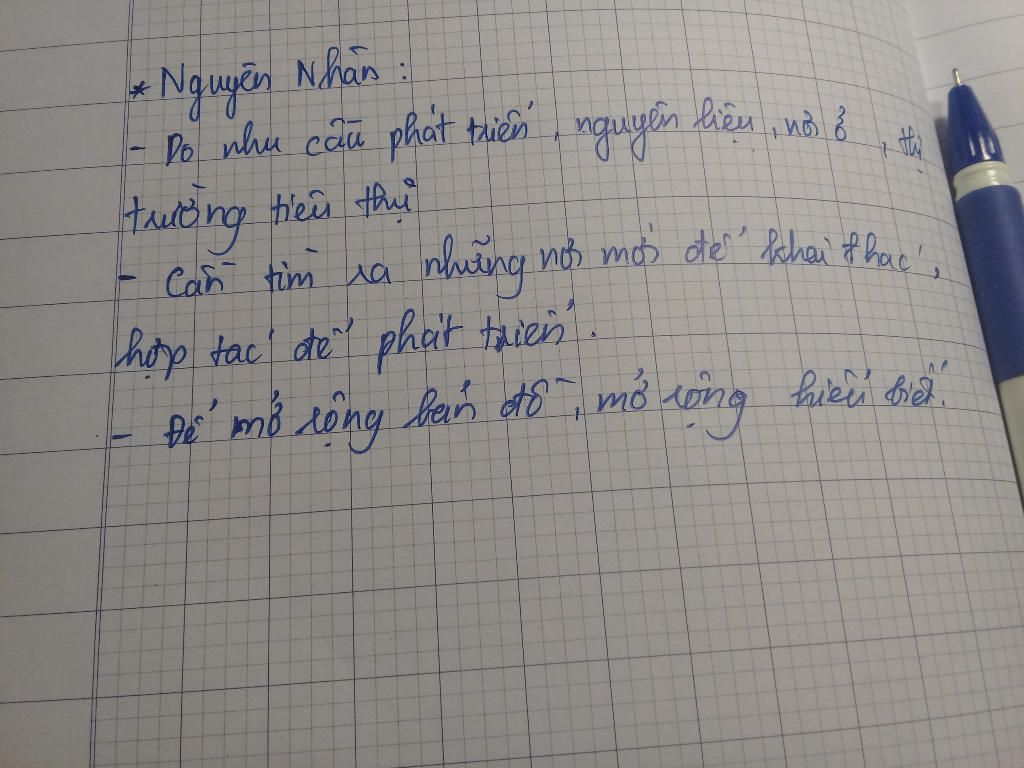 * Nguyên Nhân :
- Do nhu cầu phát triển, nguyên liệu, nơi ở, thị
trường tiêu thụ
- Cần tìm ra những nơi mới để khai thác,
hợp tác để phát triển.
- Để mở rộng bản đồ, mở rộng hiểu biết.